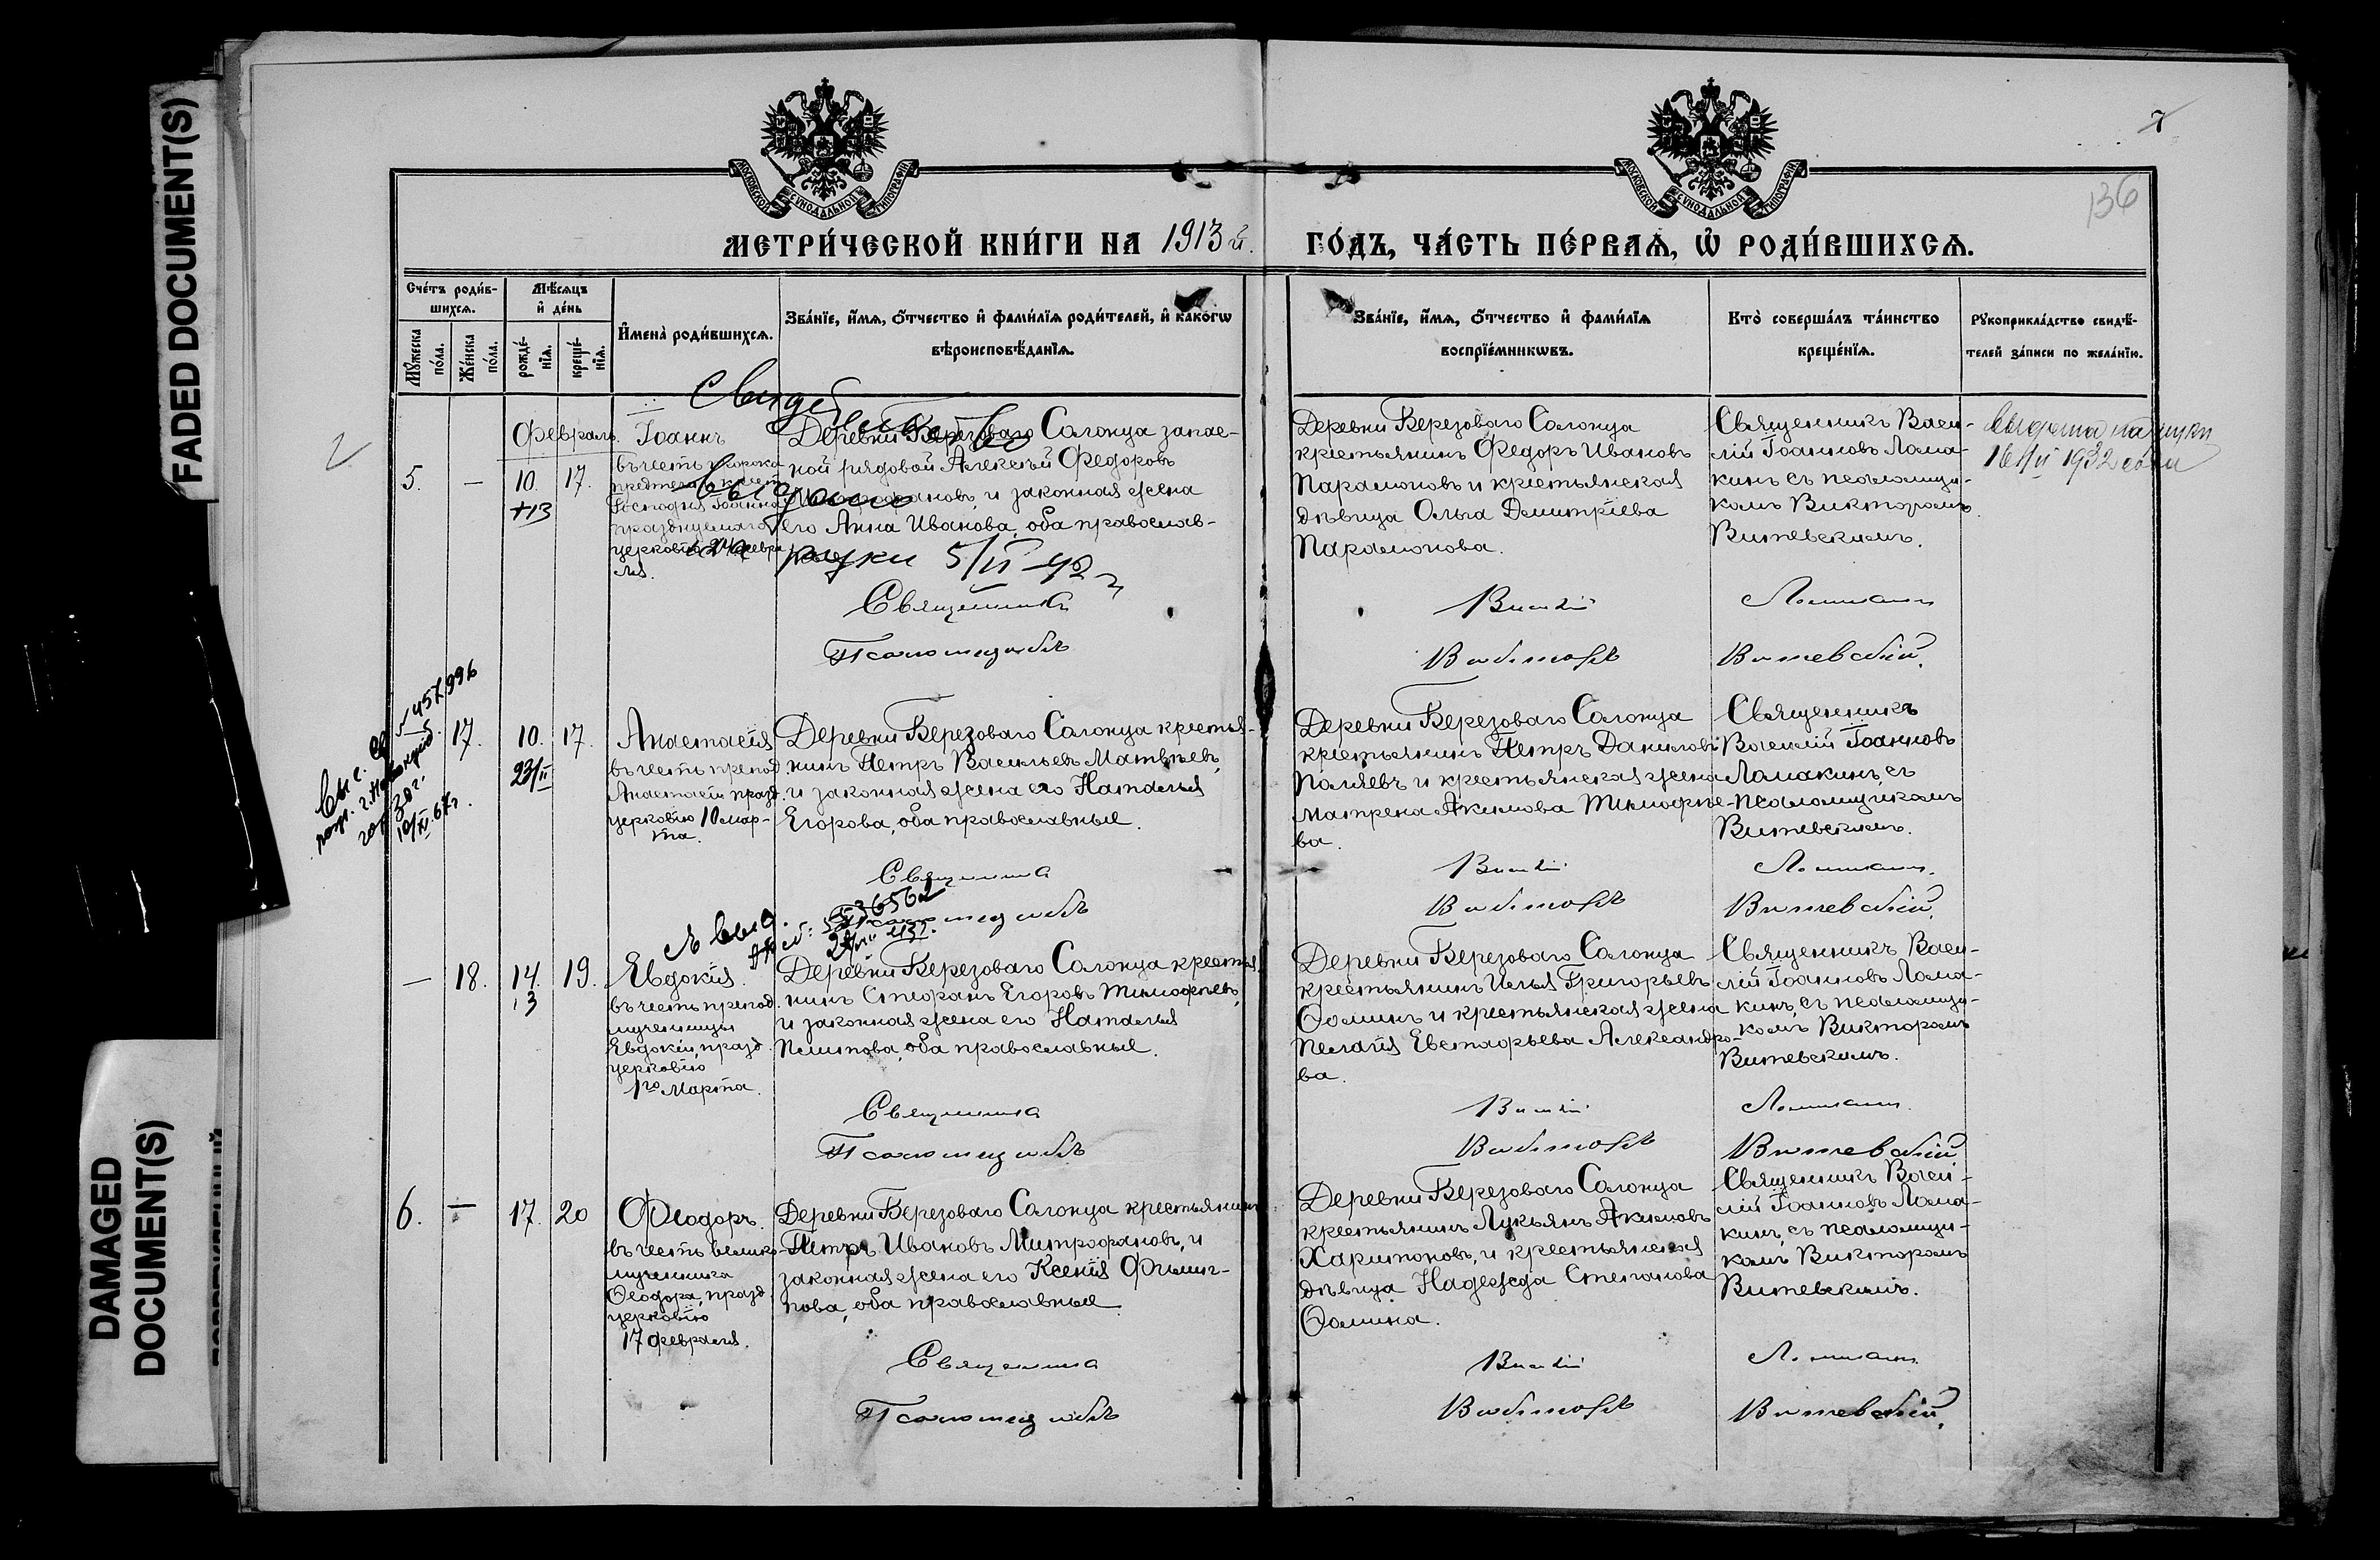 FADED DOCUMENT(S)
DAMAGED
DOCUMENT(S)
7
136
МОСКОВСКОЙ СѴНОДАЛЬНОЙ ТИПОГРАФІИ
МОСКОВСКОЙ СѴНОДАЛЬНОЙ ТИПОГРАФІИ
МЕТРИ́ЧЕСКОЙ КНИ́ГИ НА 1913 й. ГО́ДЪ, ЧА́СТЬ ПЕ́РВАѦ, Ѡ҆ РОДИ́ВШИХСѦ.
Сче́тъ роди́в-
шихсѧ.
Мꙋ́жеска
по́ла.
Же́нска
по́ла.
Мѣ́сѧцъ
и҆ де́нь
рожде́-
нїѧ.
креще́-
нїѧ.
И҆мена̀ роди́вшихсѧ.
Зва́нїе, и҆́мѧ, ѻ҆́тчество и҆ фами́лїѧ роди́телей, и҆ како́гѡ
вѣроисповѣ́данїѧ.
Зва́нїе, и҆́мѧ, ѻ҆́тчество и҆ фами́лїѧ
воспрїе́мникѡвъ.
Кто̀ соверша́лъ та́инство
креще́нїѧ.
Рꙋкоприкла́дство свидѣ́-
телей за́писи по жела́нїю.
Февраль.
5.
—
10.
+13
17.
Іоаннъ
въ честь пророка
предтечи и крест.
Господня Іоанна
празднуемаго
церковію 24 февра
ля.
Деревни Березоваго Солонца запас-
ной рядовой Алексѣй Федоровъ
и законная жена
его Анна Иванова, оба православ-
Свидетельство
выдано
на руки 5/II-42 г
Священникъ
Псаломщикъ
Деревни Березоваго Солонца
крестьянинъ Федоръ Ивановъ
Парамоновъ и крестьянская
дѣвица Ольга Димитріева
Парамонова.
Василій
Викторъ
Священникъ Васи-
лій Іоанновъ Лома-
кинъ съ псаломщи-
комъ Викторомъ
Витевскимъ.
Ломакинъ
Витевскій.
выдана на руки
16/II 1932 года
№ 457996
17.
10.
23/II
17.
Анастасія
въ честь препод.
Анастасіи празд.
церковію 10 мар-
та.
Деревни Березоваго Солонца крестья-
нинъ Петръ Васильевъ Матвѣевъ,
и законная жена его Наталья
Егорова, оба православные.
Священникъ
Псаломщикъ
Деревни Березоваго Солонца
крестьянинъ Петръ Даниловъ
Поляевъ и крестьянская жена
Матрена Акимова Тимофее-
ва.
Василій
Викторъ
Священникъ
Василій Іоанновъ
Ломакинъ, съ
псаломщикомъ
Витевскимъ.
Ломакинъ.
Витевскій.
—
18.
14.
13
19.
Евдокія.
въ честь препод.
мученицы
Евдокіи, празд.
церковію
1го Марта.
Деревни Березоваго Солонца крестья-
нинъ Стефанъ Егоровъ Тимофѣевъ,
и законная жена его Наталья
Филипова, оба православные.
Священникъ
Псаломщикъ
Деревни Березоваго Солонца
крестьянинъ Илья Григорьевъ
Ѳоминъ и крестьянская жена
Пелагія Евстафьева Александро-
ва.
Василій
Викторъ
Священникъ Васи-
лій Іоанновъ Лома-
кинъ, съ псаломщи-
комъ Викторомъ
Витевскимъ.
Ломакинъ.
Витевскій
6.
—
17.
20
Ѳеодоръ.
въ честь велико-
мученика
Ѳеодора, празд.
церковію
17 февраля.
Деревни Березоваго Солонца крестьянинъ
Петръ Ивановъ Митрофановъ, и
законная жена его Ксенія Филип-
пова, оба православные.
Священникъ
Псаломщикъ
Деревни Березоваго Солонца
крестьянинъ Лукьянъ Акимовъ
Харитоновъ, и крестьянская
дѣвица Надежда Степанова
Ѳомина.
Василій
Викторъ
Священникъ Васи-
лій Іоанновъ Лома-
кинъ, съ псаломщи-
комъ Викторомъ
Витевскимъ.
Ломакинъ.
Витевскій.